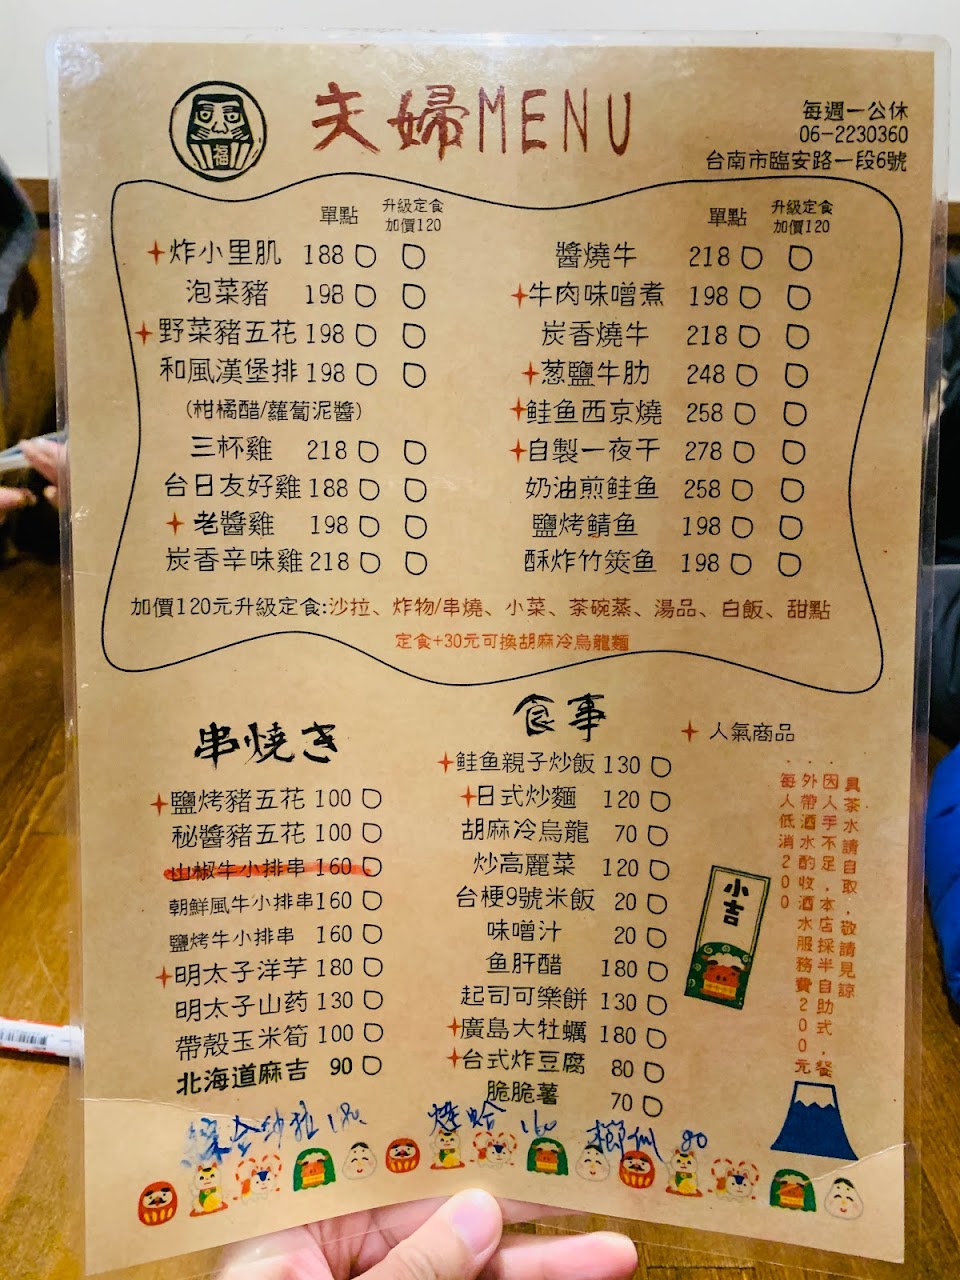 福
夫婦MENU
每週一公休
06-2230360
台南市臨安路一段6號
單點 升級定食
加價120
炸小里肌 188
泡菜豬 198
野菜豬五花 198
和風漢堡排 198
(柑橘醋/蘿蔔泥醬)
三杯雞 218
台日友好雞 188
老醬雞 198
炭香辛味雞 218
單點 升級定食
加價120
醬燒牛 218
牛肉味噌煮 198
炭香燒牛 218
葱鹽牛肋 248
鮭鱼西京燒 258
自製一夜干 278
奶油煎鮭鱼 258
鹽烤鯖鱼 198
酥炸竹筴鱼 198
加價120元升級定食:沙拉、炸物/串燒、小菜、茶碗蒸、湯品、白飯、甜點
定食+30元可換胡麻冷烏龍麵
串焼き
鹽烤豬五花 100
秘醬豬五花 100
山椒牛小排串 160
朝鮮風牛小排串 160
鹽烤牛小排串 160
明太子洋芋 180
明太子山药 130
帶殼玉米筍 100
北海道麻吉 90
食事
鮭鱼親子炒飯 130
日式炒麵 120
胡麻冷烏龍 70
炒高麗菜 120
台梗9號米飯 20
味噌汁 20
鱼肝醋 180
起司可樂餅 130
廣島大牡蠣 180
台式炸豆腐 80
脆脆薯 70
人氣商品
因人手不足，本店採半自助式，餐
具茶水請自取，敬請見諒
外帶酒水酌收酒水服務費200元
每人低消200
小吉
綜合沙拉 180
烤蛤 160
柳州 80